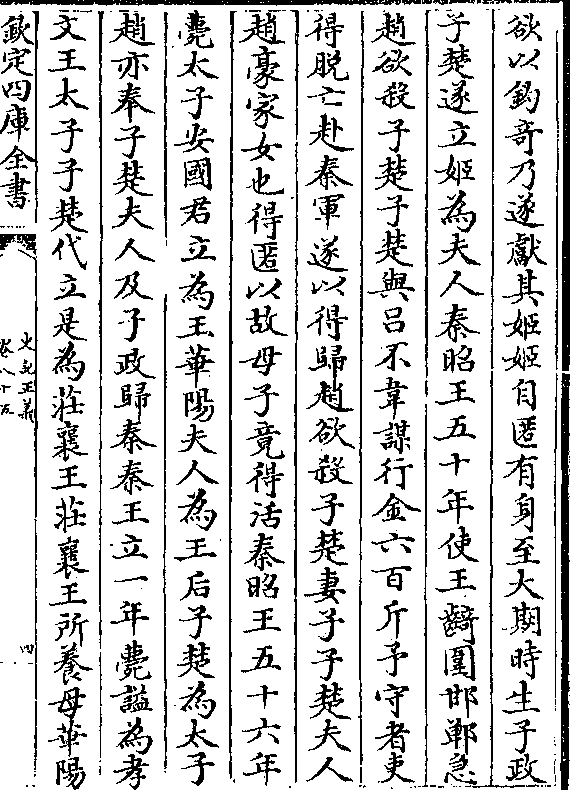 欲以釣竒乃遂獻其姬姬自匿有身至大期時生子政
子楚遂立姬為夫人秦昭王五十年使王齮圍邯鄲急
趙欲殺子楚子楚與吕不韋謀行金六百斤予守者吏
得脱亡赴秦軍遂以得歸趙欲殺子楚妻子子楚夫人
趙豪家女也得匿以故母子竟得活秦昭王五十六年
薨太子安國君立為王華陽夫人為王后子楚為太子
趙亦奉子楚夫人及子政歸秦秦王立一年薨諡為孝
文王太子子楚代立是為莊襄王莊襄王所養母華陽
欽定四庫全書
史記正義
卷八十五
四